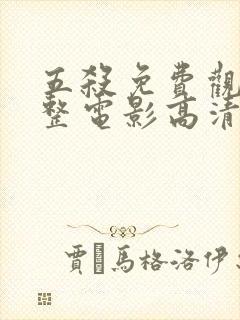 五殺免費觀
整電影高清
賈 馬格洛伊